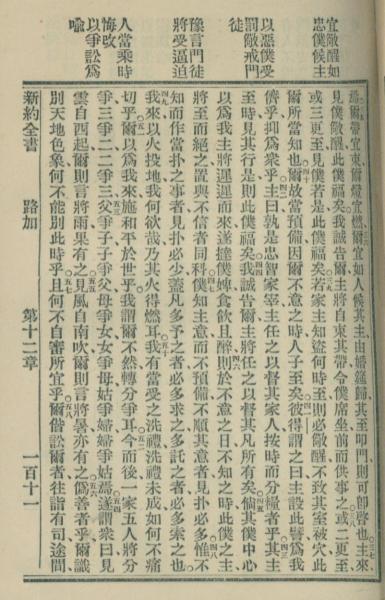 宜儆醒如
忠僕候主
以惡僕受
罰儆戒門
徒
豫言門徒
將受逼迫
人當乘時
悔改
以爭訟爲
喻
爾帶宜束爾燈宜燃爾宜如人候其主由婚筵歸其至叩門則可卽啓也主來
見僕儆醒此僕福矣我誠告爾主將自束其帶令僕席坐前而供事之或二更至
或三更至見僕若是此僕福矣若家主知盜何時至則必儆醒不致其室被穴此
爾所當知也爾故當預備因爾不意之時人子至矣彼得謂之曰主設此譬爲我
儕乎抑爲衆乎主曰孰是忠智家宰主任之以督其家人按時而分糧者乎其主
至時見其行是則此僕福矣我誠告爾主將任之以督其凡所有矣倘其僕中心
以爲我主將遲遲而來遂撻僕婢食飲且醉則於不意之日不知之時此僕之主
將至而絕之置與不信者同科僕知主意而不預備不順其意者見扑必多惟不
知而作當扑之事者見扑必少蓋凡多予之者必多求之多託之者必多索之也
我來以火投地我何欲哉乃其火得燃耳我有當受之洗禮洗禮未成如何不痛
切乎爾以爲我來施和平於世乎我謂爾不然轉分爭耳今而後一家五人將分
爭三爭二二爭三父爭子子爭父母爭女女爭母姑爭婦婦爭姑焉遂謂衆曰見
雲自西起爾則言將雨果有之見風自南吹爾則言將暑亦有之僞善者乎爾識
別天地色象何不能別此時乎且何不自審所宜乎爾偕訟爾者往詣有司途間
新約全書　路加　第十二章　一百十一